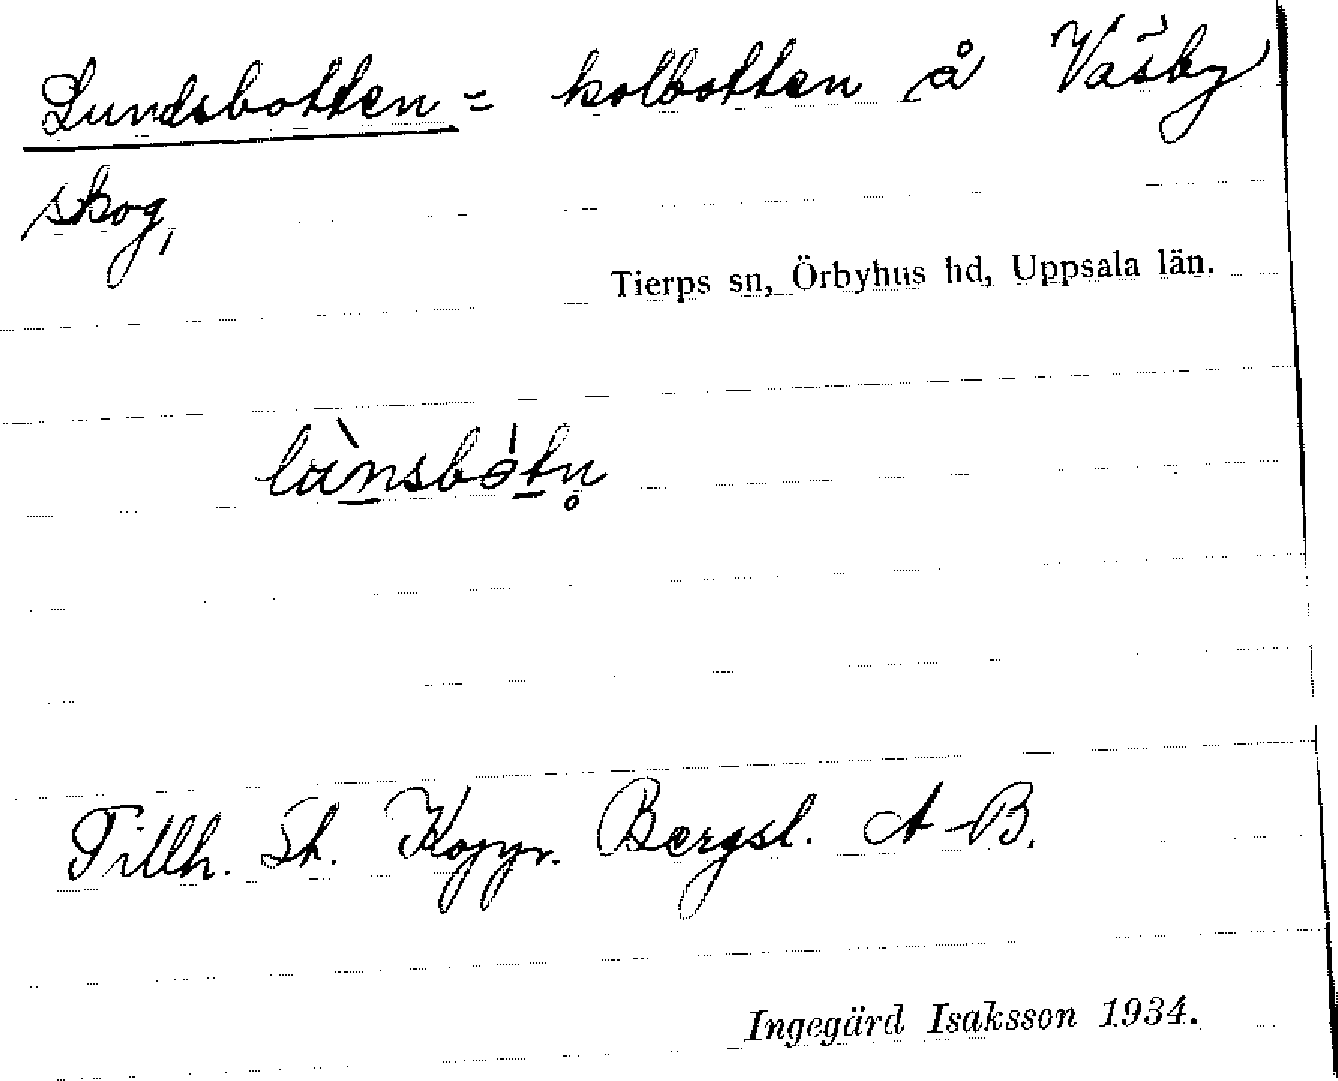 Lundsbotten = kolbotten å Väsby
skog,
Tierps sn, Örbyhus hd, Uppsala län.
lùnsbótn̥
Tillh. St. Koppr. Bergsl. A-B.
Ingegärd Isaksson 1934.